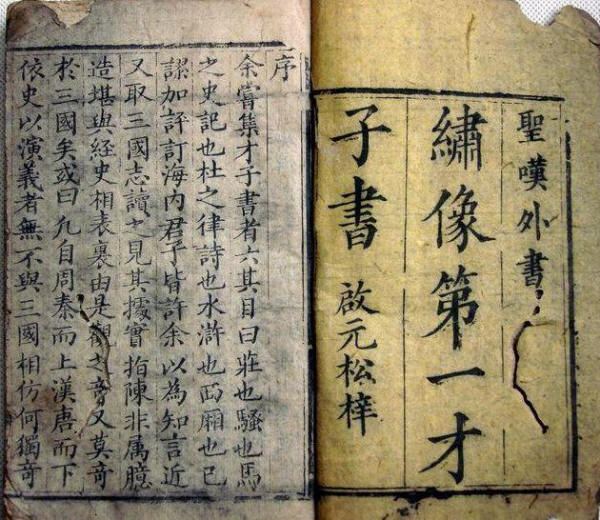 聖嘆外書
繡像第一才
子書 啟元松梓
序
余嘗集才子書者六其目曰莊也騷也馬
之史記也杜之律詩也水滸也西廂也已
謬加評訂海內君子皆許余以為知言近
又取三國志讀之見其據實指陳非属臆
造堪與経史相表裏由是觀之竒又莫竒
於三國矣或曰凢自周秦而上漢唐而下
依史以演義者無不與三國相仿何獨竒